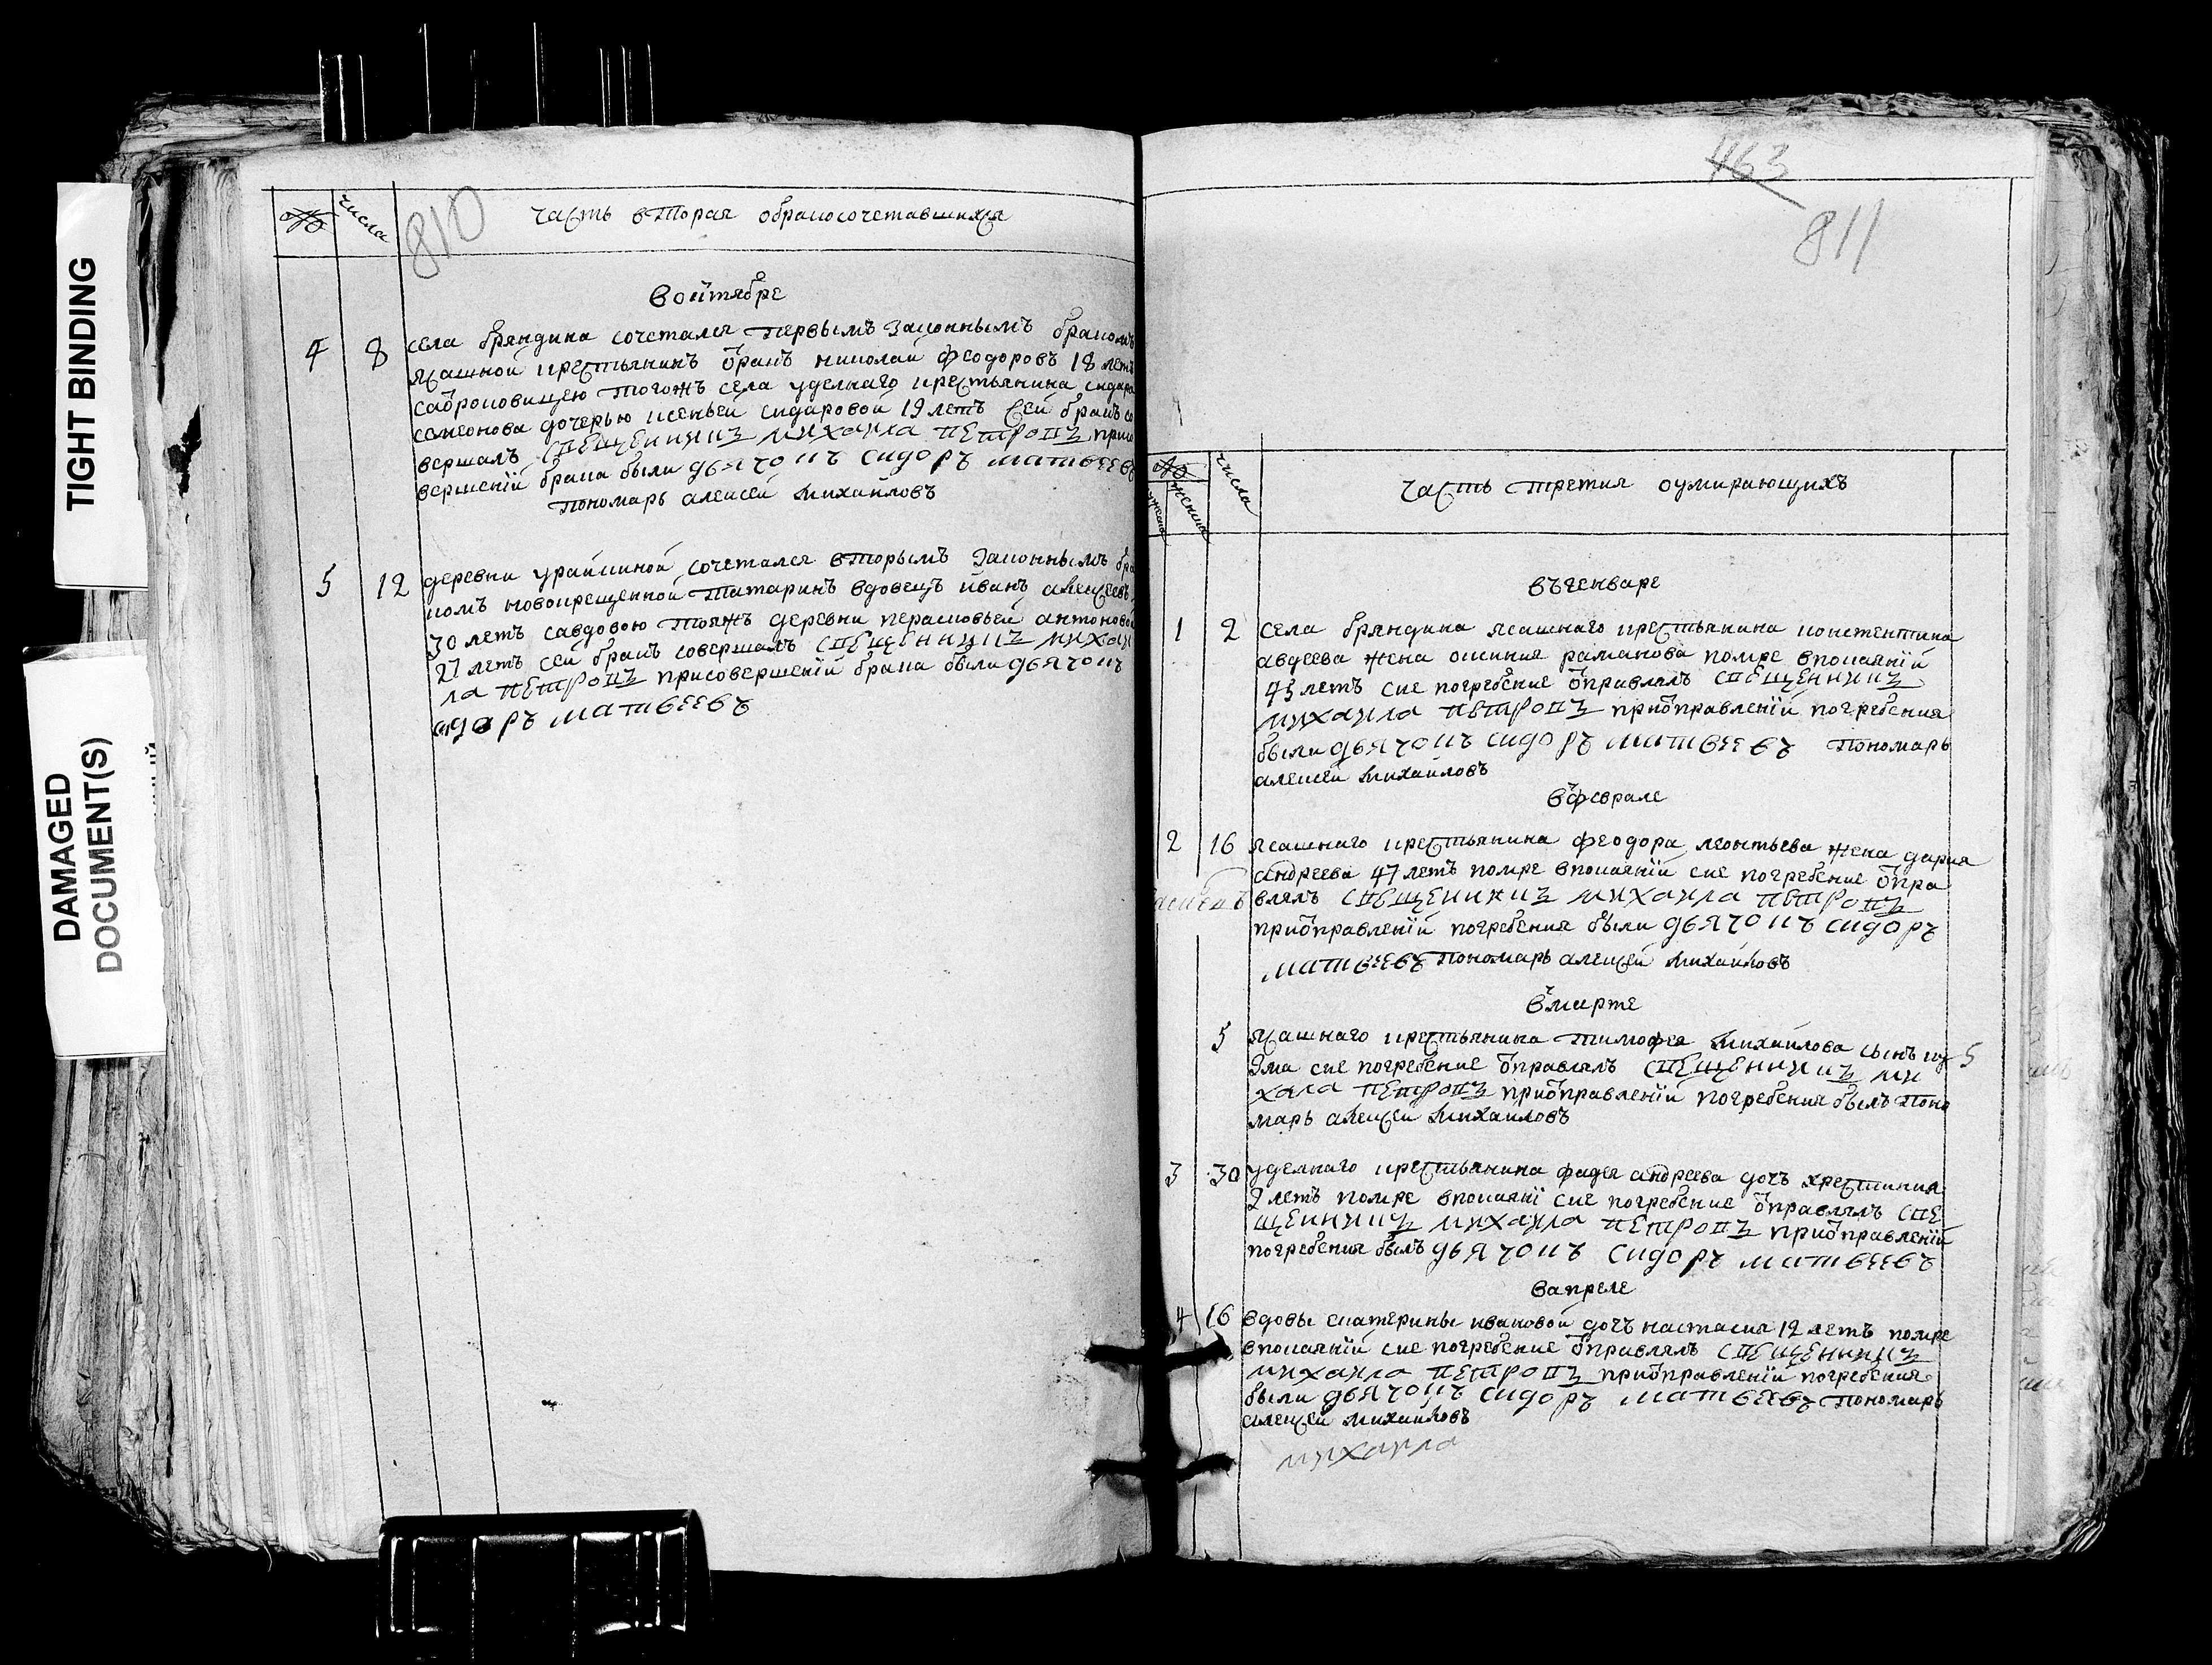 TIGHT BINDING
DAMAGED
DOCUMENT(S)
№
числа
810
часть вторая обракосочетавшихся
воктябре
4 8 села бряндина сочетался первымъ законнымъ бракомъ
ясашной крестьянинъ отракъ николай феодоровъ 18 летъ
сотроковицею тогожъ села уделнаго крестьянина сидара
семеонова дочерью ксеньей сидаровой 19 летъ сей бракъ со
вершалъ свещенникъ михаила петровъ присо
вершеніи брака были дьячокъ сидоръ матвеевъ
пономарь алексей михайловъ
5 12 деревни урайкиной сочетался вторымъ законнымъ бра
комъ новокрещенной татаринъ вдовецъ иванъ алексеевъ
30 летъ савдовою тояжъ деревни парасковьей антоновой
27 летъ сей бракъ совершалъ свещенникъ михаи
ла петровъ присовершеніи брака были дьячокъ
сидоръ матвеевъ
463
811
№
мужеска
женска
числа
часть третия оумирающихъ
въгенваре
1 2 села бряндина ясашнаго крестьянина констентина
авдеева жена ксения раманова помре впокаяніи
45 летъ сие погребение отправлялъ свещенникъ
михаила петровъ приотправленіи погребения
были дьячокъ сидоръ матвеевъ пономарь
алексей михайловъ
вфеврале
2 16 ясашнаго крестьянина феодора леонтьева жена дария
андреева 47 летъ помре впокаяніи сие погребение отпра
влялъ свещенникъ михаила петровъ
приотправленіи погребения были дьячокъ сидоръ
матвеевъ пономарь алексей михайловъ
вмарте
5 ясашнаго крестьянина тимофея михайлова сынъ куз 5
ма сие погребение отправлялъ свещенникъ ми
хаила петровъ приотправленіи погребения былъ поно
марь алексей михаиловъ
3 30 уделнаго крестьянина фадея андреева дочь христиния
2 летъ помре впокаяні сие погребение отправлялъ све
щенникъ михаила петровъ приотправленіи
погребения былъ дьячокъ сидоръ матвеевъ
вапреле
4 16 вдовы екатерины ивановой дочь настасия 12 летъ помре
впокаяніи сие погребение отправлялъ свещенникъ
михаила петровъ приотправленіи погребения
были дьячокъ сидоръ матвеевъ пономарь
алексей михайловъ
михаила